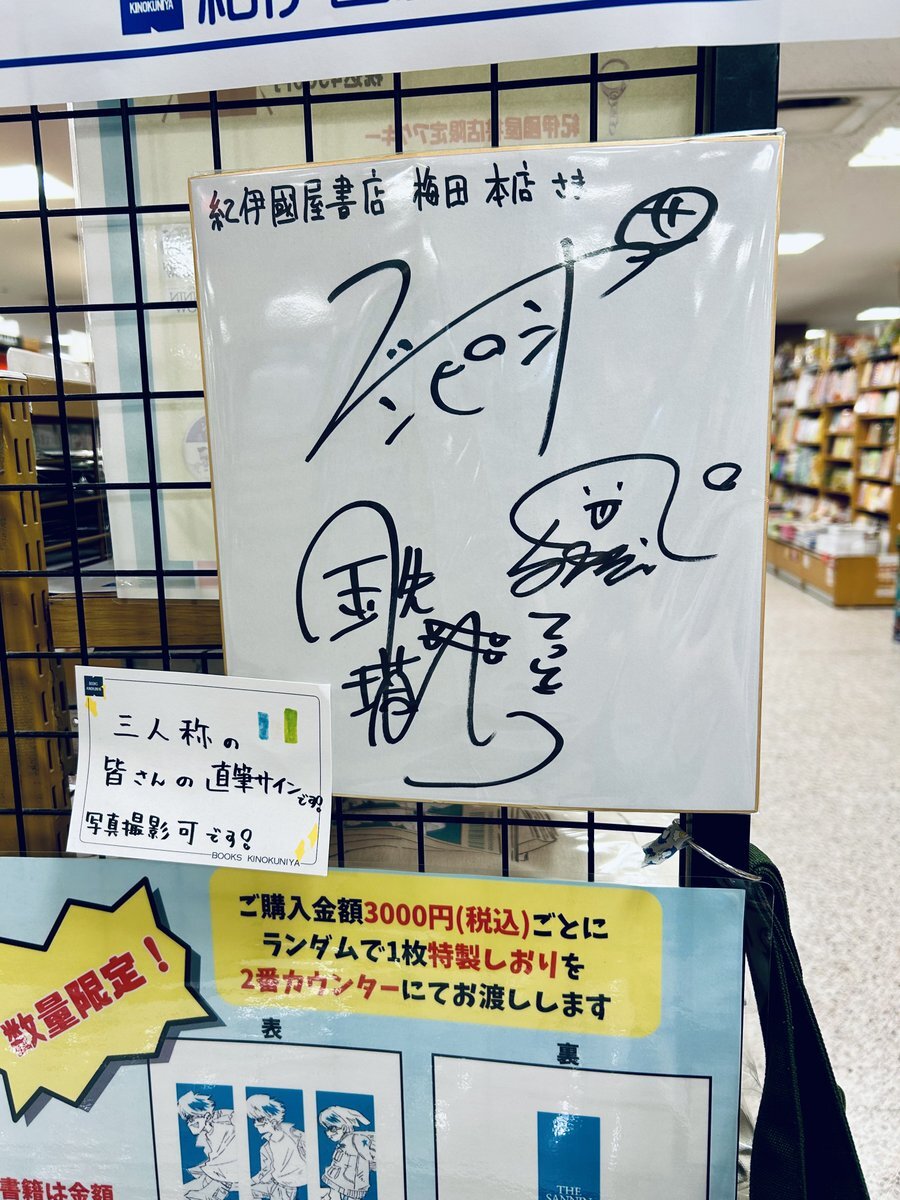 KINOKUNIYA
紀伊國屋書店限定アクキー
紀伊國屋書店 梅田 本店 さき
ドンピシャ
ぺ
てっとう
鉄塔
BOOKS KINOKUNIYA
三人称の
皆さんの直筆サイン
です!
写真撮影可です!
BOOKS KINOKUNIYA
数量限定!
ご購入金額3000円(税込)ごとに
ランダムで1枚特製しおりを
2番カウンターにてお渡しします
表
裏
書籍は金額
THE
SANNIN